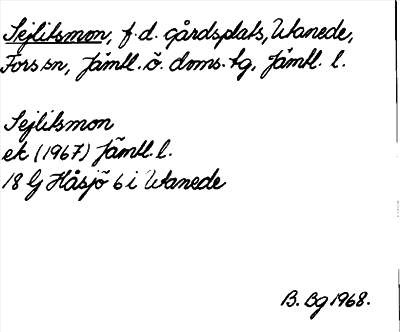 Sejlitsmon, f.d. gårdsplats, Utanede,
Fors sn, Jämtl. ö. doms. tg, Jämtl. l.
Sejlitsmon
ek (1967) Jämtl. l.
18 G Håsjö 6 i Utanede
B. Bg 1968.